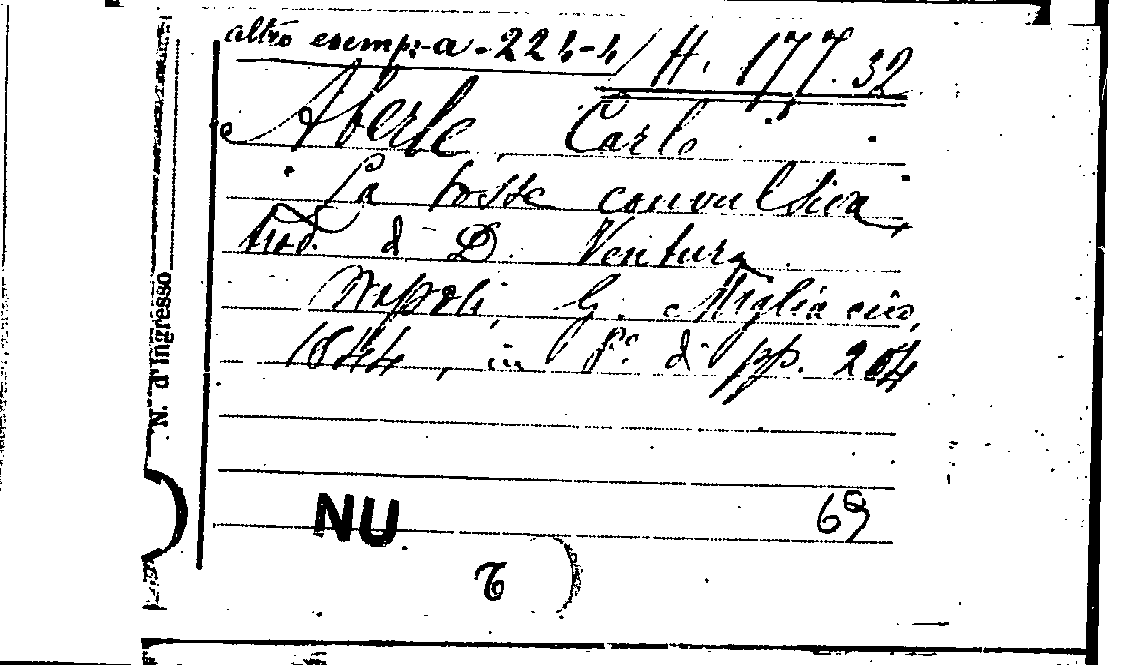 altro esemp: a - 224-4 / H. 177.32
Aberle, Carlo
La tosse convulsiva,
trad. di D. Ventura
Napoli, G. Migliaccio,
1844, in 8° di pp. 204
N. d'Ingresso
NU
69